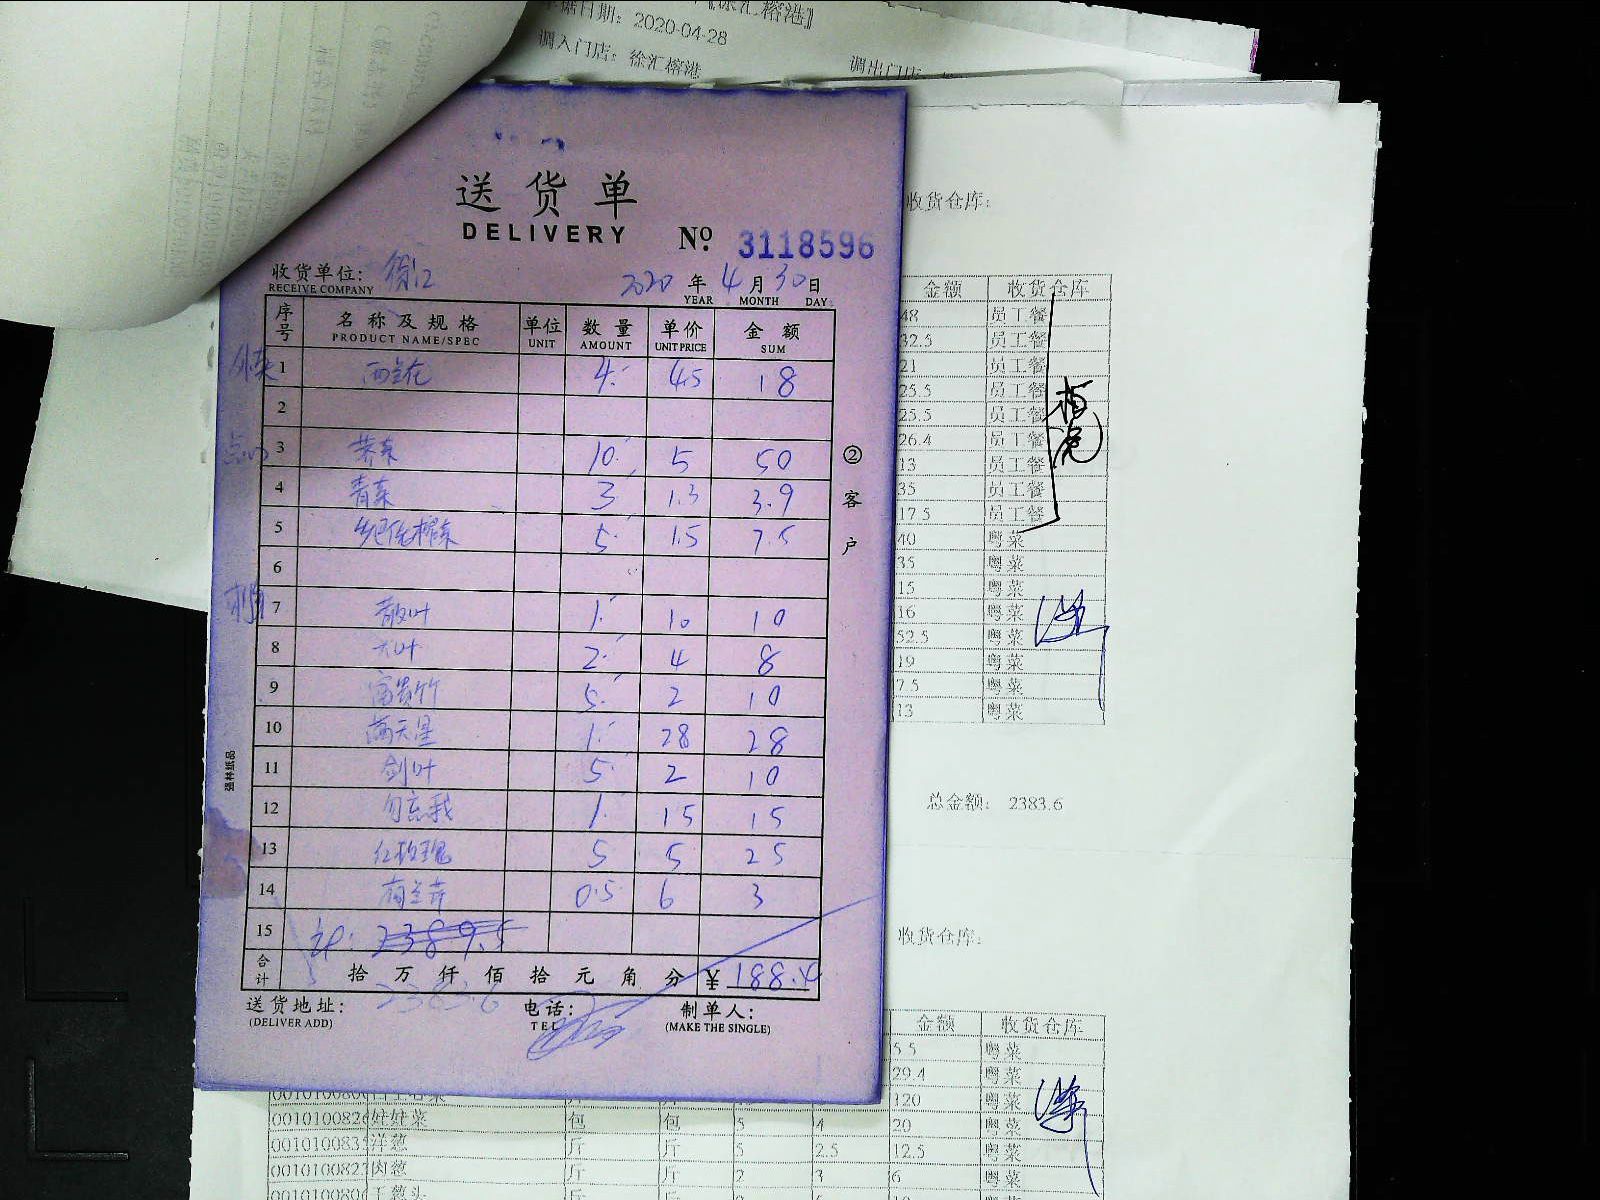 2020-04-28
调入门店: 徐汇榕港
调出门店:
送货单
DELIVERY № 3118596
收货单位: 徐汇 2020 年 4 月 30 日
RECEIVE COMPANY YEAR MONTH DAY
序号 名称及规格 单位 数量 单价 金额
PRODUCT NAME/SPEC UNIT AMOUNT UNIT PRICE SUM
1 西兰花 4 4.5 18
2
点心 3 10 5 50
4 青菜 3 1.3 3.9
5 5 1.5 7.5
6
7 散叶 1 10 10
8 大叶 2 4 8
9 富贵竹 5 2 10
10 满天星 1 28 28
11 剑叶 5 2 10
12 勿忘我 1 15 15
13 红玫瑰 5 5 25
14 荷兰芹 0.5 6 3
15 2389.5
合计 拾 万 仟 佰 拾 元 角 分 ¥ 188.4
2383.6
送货地址: 电话: 制单人:
(DELIVER ADD) TEL (MAKE THE SINGLE)
②客户
强林纸品
收货仓库:
金额 收货仓库
48 员工餐
32.5 员工餐
21 员工餐
25.5 员工餐
25.5 员工餐
26.4 员工餐
13 员工餐
35 员工餐
17.5 员工餐
40 粤菜
35 粤菜
15 粤菜
16 粤菜
52.5 粤菜
19 粤菜
7.5 粤菜
13 粤菜
总金额: 2383.6
收货仓库:
金额 收货仓库
5.5 粤菜
29.4 粤菜
120 粤菜
娃娃菜 包 包 5 4 20 粤菜
洋葱 斤 斤 5 2.5 12.5 粤菜
肉葱 斤 斤 2 3 6 粤菜